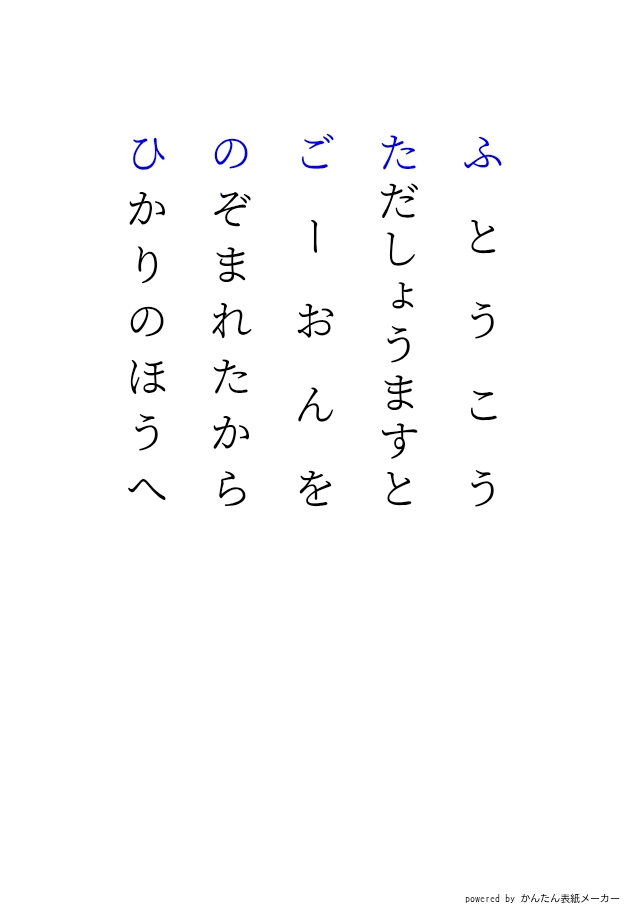 ふとうこう
ただしょうますと
ごーおんを
のぞまれたから
ひかりのほうへ
powered by かんたん表紙メーカー